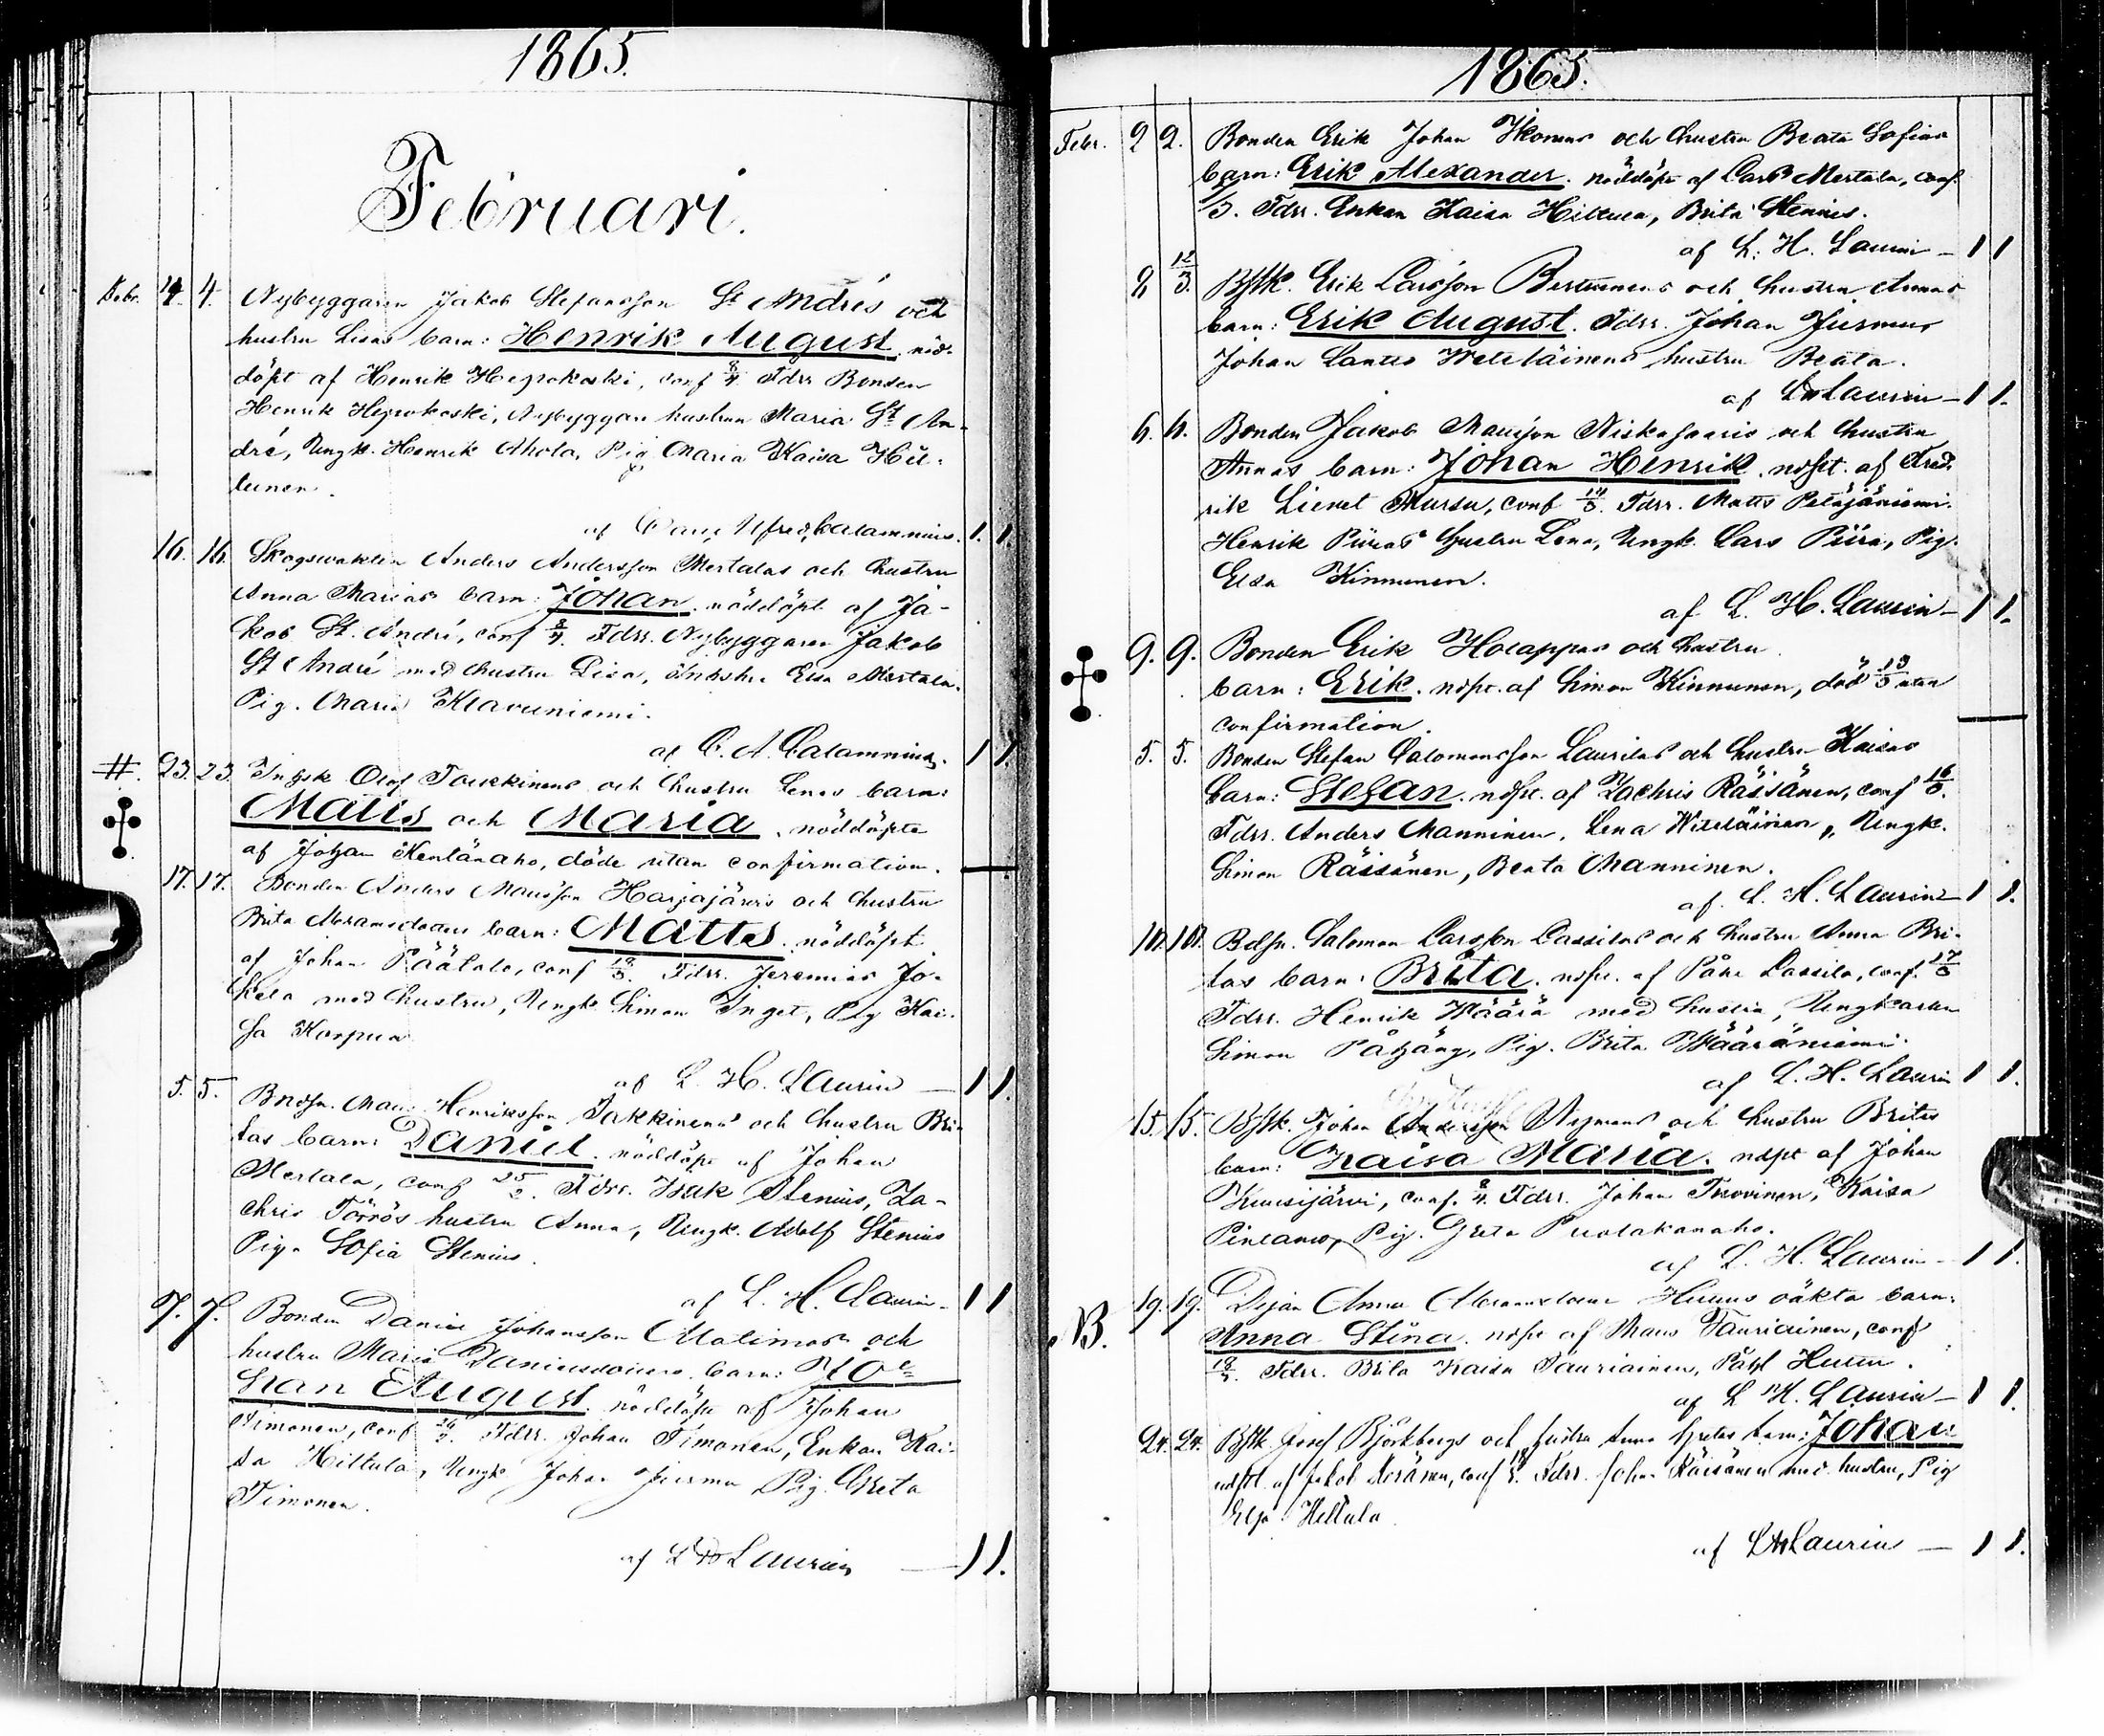 1865.
Februari.
Febr. 4. 4. Nybyggaren Jakob Stefansson St Andrés och
hustru Lisas barn: Henrik August, nöd-
döpt af Henrik Hepokoski, conf 8/4. Fdrr Bonden
Henrik Hepokoski, Nybyggare hustrun Maria St An-
dré, Yngk. Henrik Ahola, Pig Maria Kaisa Hil-
tunen.
af Alfred Calamnius. 1. 1.
16. 16. Skogsvakten Anders Andersson Mertalas och hustru
Anna Marias barn: Johan. nöddöpt af Ja-
kob St. André, conf 8/4. Fdrr. Nybyggaren Jakob
St André med hustru Lisa, Elsa Mertala.
Pig. Maria Klavuniemi.
af C. A. Calamnius. 1 1.
#. 23. 23. Olof Torkkinens och hustru Lenas barn:
Matts och Maria, nöddöpte
af Johan Kenlänaho, döde utan confirmation.
17. 17. Bonden Anders Mausson Harjajärvis och hustru
Brita Abramsdotters barn: Matts. nöddöpt
af Johan Päätalo, conf 12/3. Fdrr. Jeremias Jo-
kela med hustru, Yngk Simon Inget, Pig Kai-
sa Korpua
af L. H. Laurin 1 1.
5. 5. Bndsn. Maus Henriksson Takkinens och hustru Bri-
tas barn: Daniel. nöddöpt af Johan
Mertala, conf 25/2. Fdrr. Isak Stenius, Za-
chris Törrös hustru Anna, Yngk. Adolf Stenius
Pig. Sofia Stenius.
af L. H. Laurin. 1 1
7. 7. Bonden Daniel Johansson Matimos och
hustru Maria Danielsdotters barn: Jo-
han August. nöddöpt af Johan
Timonen, conf Fdrr. Johan Timonen, Enkan Kai-
sa Hiltula, Yngk Johan Juurma Pig. Greta
Timonen.
af L H Laurin 1 1.
1865.
Febr. 2 2. Bonden Erik Johan Ikonens och hustru Beata Sofias
barn: Erik Alexander. nöddöpt af Lars Mertala, conf.
Fdrr. Enkan Kaisa Hiltula, Brita Stenius.
af L. H. Laurin 1 1
2 12/3. Bstk. Erik Larsson Berttunens och hustru Annas
barn: Erik August. Fdrr. Johan Juurmus
Johan Lantto Weteläinens hustru Beata.
af L H Laurin 1 1.
6. 6. Bonden Jakob Mausson Niskasaaris och hustru
Annas barn: Johan Henrik. ndpt. af Fred-
rik Lienet Mursu, conf 14/3. Fdrr. Matts Petäjäniemi.
Henrik Piiras hustru Lena, Yngk. Lars Piira, Pig.
Elsa Kinnunen.
af L. H. Laurin 1 1.
9. 9. Bonden Erik Holappas och hustru
barn: Erik. ndpt. af Simon Kinnunen, död 13/3 utan
confirmation.
5. 5. Bonden Stefan Salomonsson Laurilas och hustru Kaisas
barn: Stefan. ndpt. af Zachris Räisänen, conf 16/3.
Fdrr. Anders Manninen, Lena Witeläinen, Yngk.
Simon Räisänen, Beata Manninen.
af. L. H. Laurin 1 1.
10. 10. Bdsn. Salomon Larsson Lassilas och hustru Anna Bri-
tas barn: Brita. ndpt. af Påhl Lassila, conf. 17/3
Fdrr. Henrik Määrä med hustru, Yngkarlen
Simon Påhäng, Pig. Brita Wääräniemi.
af L. H. Laurin 1 1.
15. 15. Bstk. Johan Andersson Nymans och hustru Britas
barn: Kaisa Maria. ndpt af Johan
Kuusijärvi, conf. 8/4. Fdrr. Johan Tuovinen, Kaisa
Pig. Greta Puolakanaho.
af L. H. Laurin 1 1.
B. 19. 19. Dejan Anna Abramsdotter Huuus oäkta barn:
Anna Stina. ndpt af Maus Tauriainen, conf
18/4. Fdrr. Brita Kaisa Tauriainen, Påhl Huuu.
af L H. Laurin 1 1.
24. 24. Bstk. Josef Björkbergs och hustru Anna Gretas barn: Johan
ndpt. af Jakob Keränen, conf Fdrr. Johan Räisänen med hustru, Pig
Elsa Heltula
af L H Laurin 1 1.